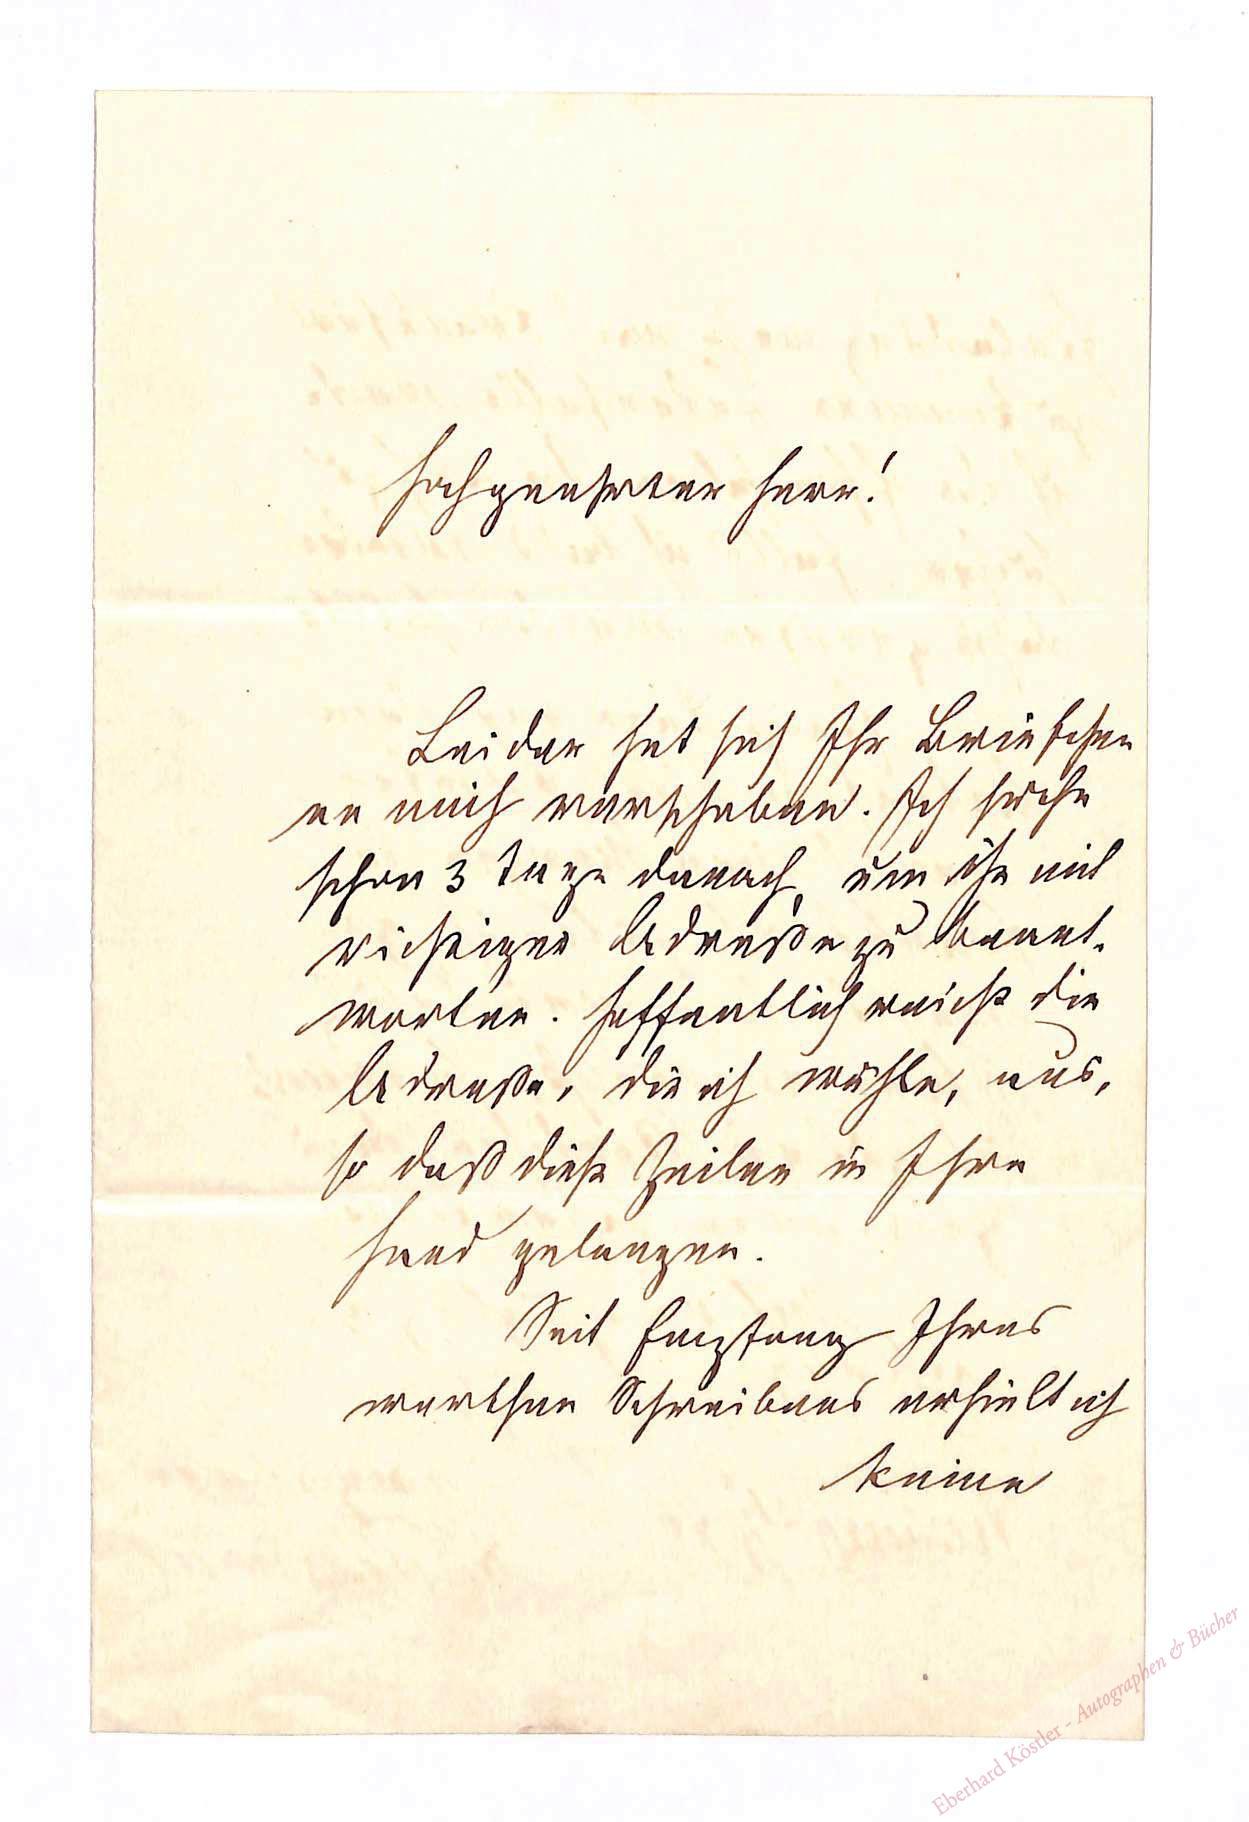 Hochgeehrter Herr!
Leider hat sich Ihr Briefchen
an mich verschoben. Ich suche
schon 3 Tage danach, um ihn mit
richtiger Adreße zu beant-
worten. Hoffentlich reicht die
Adreße, die ich wähle, aus,
so daß diese Zeilen in Ihre
Hand gelangen.
Seit Empfang Ihres
werthen Schreibens erhielt ich
keine
Eberhard Köstler - Autographen & Bücher